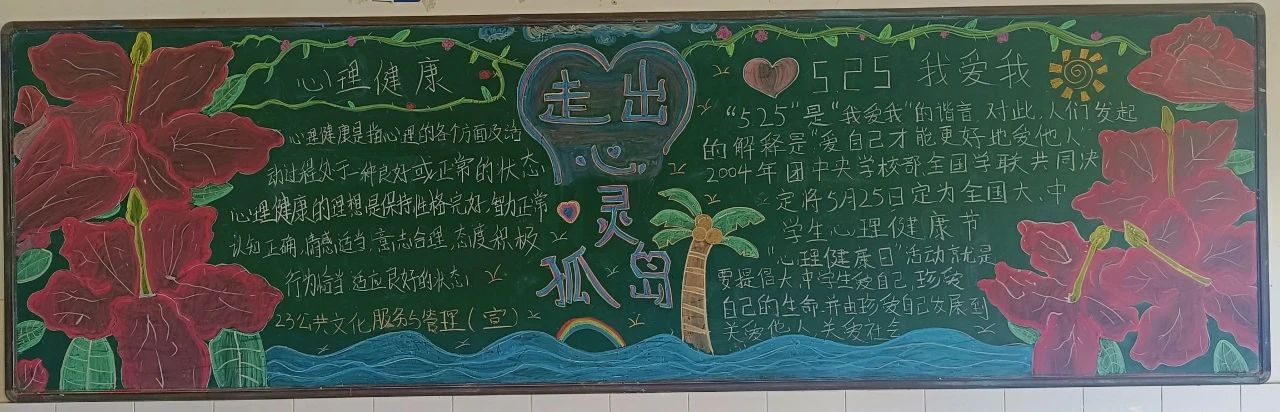 心理健康
心理健康是指心理的各个方面及活
动过程处于一种良好或正常的状态
心理健康的理想是保持性格完好，智力正常
认知正确，情感适当，意志合理，态度积极
行为恰当，适应良好的状态
23公共文化服务与管理（宣）
走出
心
灵
孤岛
525 我爱我
“525”是“我爱我”的谐音，对此，人们发起
的解释是“爱自己才能更好地爱他人”
2004年团中央学校部全国学联共同决
定将5月25日定为全国大、中
学生心理健康节
“心理健康日”活动就是
要提倡大、中学生爱自己，珍爱
自己的生命，并由珍爱自己发展到
关爱他人，关爱社会